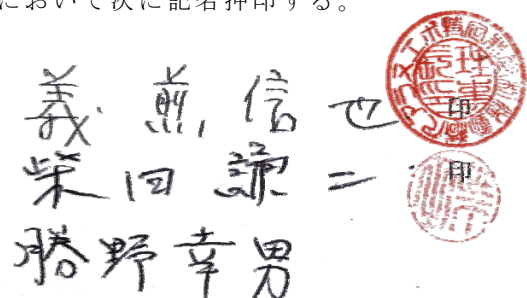 において次に記名押印する。
義煎信也 印
柴田謙二 印
勝野幸男